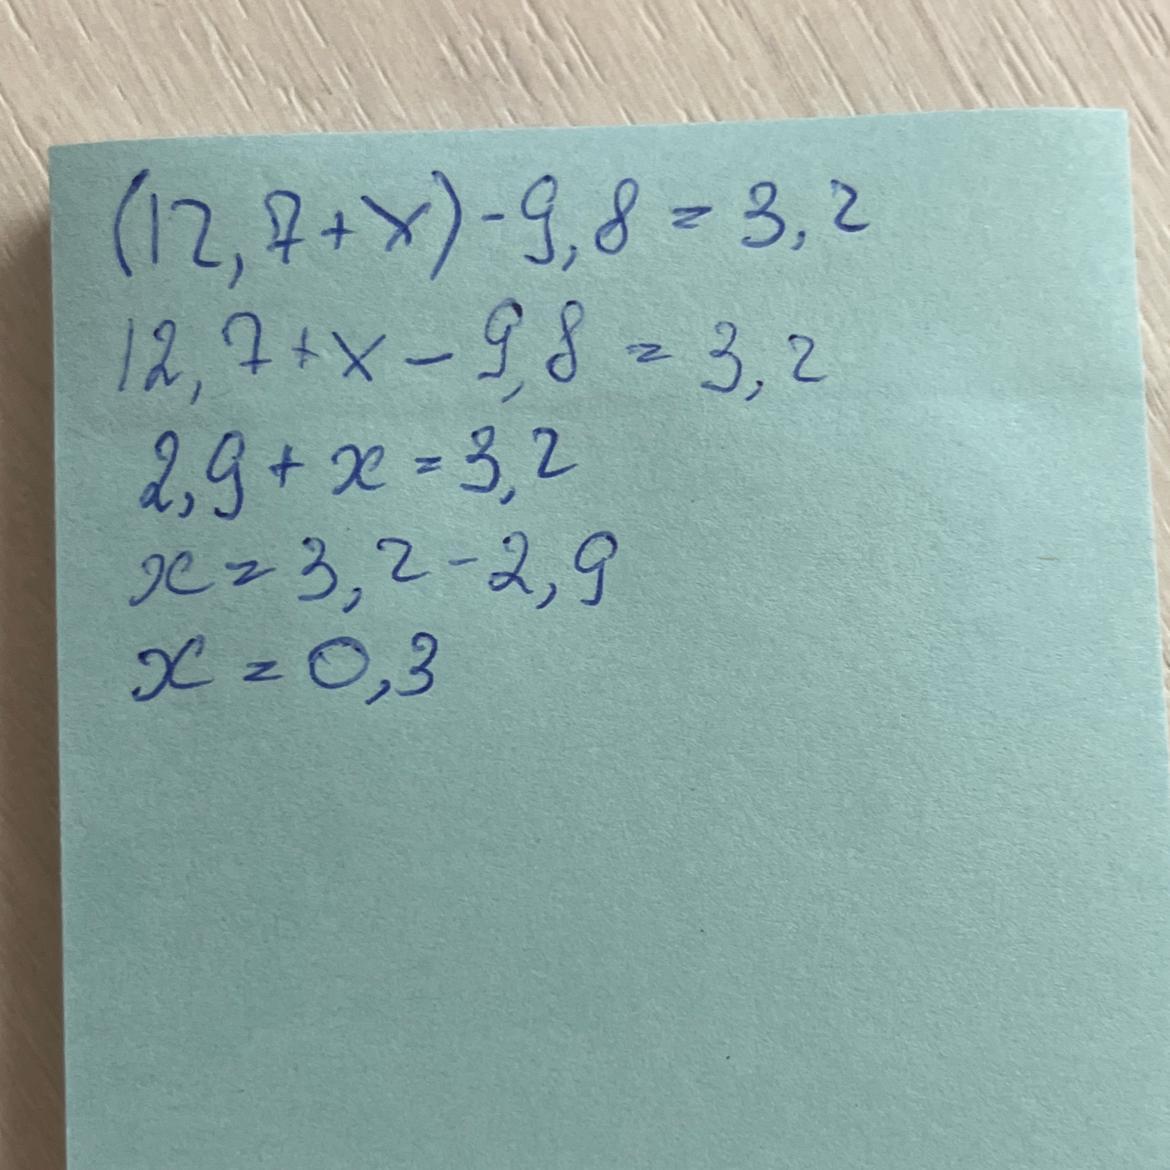 (12,7+x)-9,8=3,2
12,7+x-9,8=3,2
2,9+x=3,2
x=3,2-2,9
x=0,3